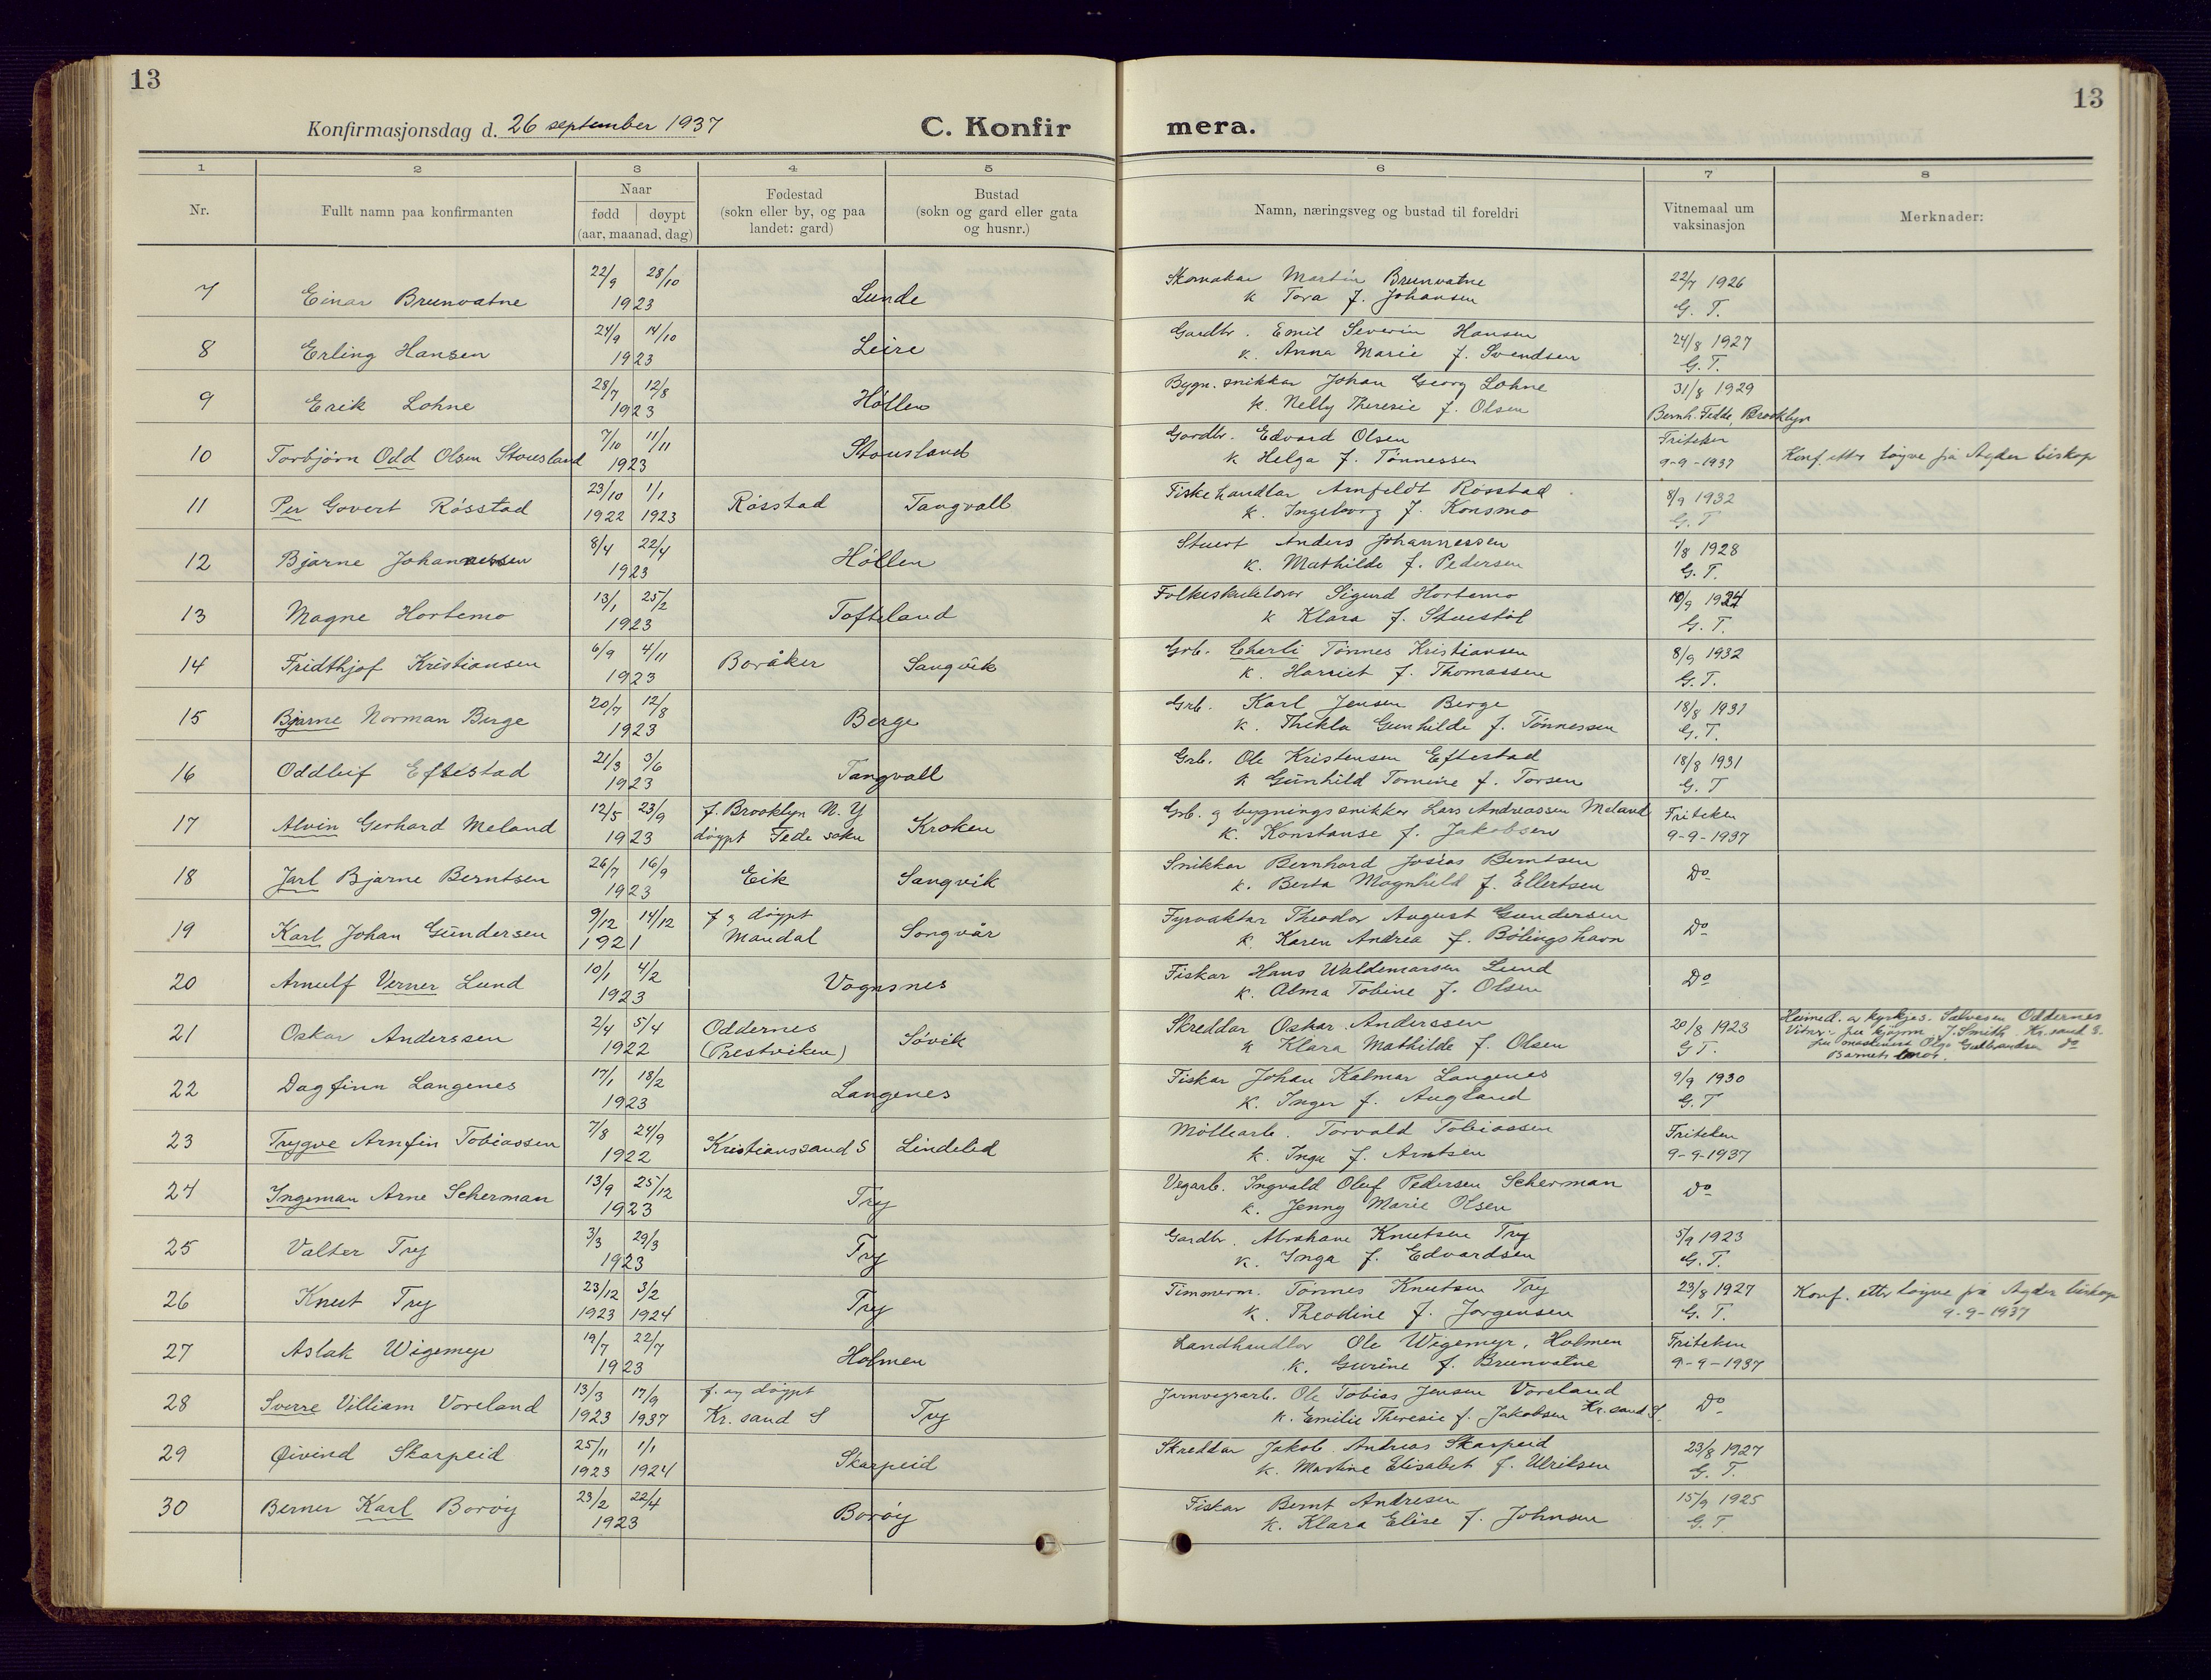 13
13
Konfirmasjonsdag d. 26 september 1937
C. Konfir mera.
1 2 3 4 5 6 7 8
Nr.
Fullt namn paa konfirmanten
Naar
fødd | døypt
(aar, maanad, dag)
Fødestad
(sokn eller by, og paa
landet: gard)
Bustad
(sokn og gard eller gata
og husnr.)
Namn, næringsveg og bustad til foreldri
Vitnemaal um
vaksinasjon
Merknader:
22/9 28/10 Skomakar Martin Brunvatne 22/7 1926
7 Einar Brunvatne 1923 Lunde k Tora f. Johansen G. T.
24/9 14/10 Gardbr. Emil Severin Hansen 24/8 1927
8 Erling Hansen 1923 Leire k. Anna Marie f. Svendsen G. T.
28/7 12/8 Bygn. snikkar Johan Georg Lohne 31/8 1929
9 Erik Lohne 1923 Höllen k. Nelly Theresie f. Olsen Bernh. Fedde, Brooklyn
7/10 11/11 Gardbr. Edvard Olsen Friteken
10 Torbjörn Odd Olsen Stousland 1923 Stousland k Helga f. Tönnessen 9-9-1937 Konf. etter löyve frå Agder biskop
23/10 1/1 Fiskehandlar Arnfeldt Rösstad 8/9 1932
11 Per Govert Rösstad 1922 1923 Rösstad Tangvall k. Ingeborg f. Konsmo G. T
8/4 22/4 Stuert Anders Johannessen 1/8 1928
12 Bjarne Johannessen 1923 Höllen k. Mathilde f. Pedersen G. T.
13/1 25/2 Folkeskulelærar Sigurd Hortemo 10/9 1924
13 Magne Hortemo 1923 Tofteland k Klara f. Stuestöl G. T.
6/9 4/11 Grb. Charli Tönnes Kristiansen 8/9 1932
14 Fridthjof Kristiansen 1923 Boråker Sangvik k. Harriet f. Thomassen G. T.
20/7 12/8 Grb. Karl Jensen Berge 18/8 1931
15 Bjarne Norman Berge 1923 Berge k. Thekla Gunhilde f. Tönnessen G. T.
21/3 3/6 Grb. Ole Kristensen Eftestad 18/8 1931
16 Oddleif Eftestad 1923 Tangvall k Gunhild Tomine f. Torsen G. T
12/5 23/9 f. Brooklyn N. Y Grb. og bygningssnikkar Lars Andreassen Meland Friteken
17 Alvin Gerhard Meland 1923 döypt Fede sokn Kroken k. Konstanse f. Jakobsen 9-9-1937
26/7 16/9 Snikkar Bernhard Josias Berntsen
18 Jarl Bjarne Berntsen 1923 Eik Sangvik k. Berta Magnhild f. Ellertsen Do
9/12 14/12 f og döypt Fyrvaktar Theodor August Gundersen
19 Karl Johan Gundersen 1921 Mandal Songvår k. Karen Andrea f. Bölingshavn Do
10/1 4/2 Fiskar Hans Waldemarsen Lund
20 Arnulf Verner Lund 1923 Vognsnes k. Alma Tobine f. Olsen Do
2/4 5/4 Oddernes Skreddar Oskar Anderssen 20/8 1923 Heimed. av kyrkjes. Salvesen Oddernes
21 Oskar Anderssen 1922 (Prestviken) Sövik k Klara Mathilde f. Olsen G T. Vitnir: fru kjöpm. J. Smith Kr.sand S.
fru maskinist Olga Gulbrandsen do
Barnets mor.
17/1 18/2 Fiskar Johan Kalmar Langenes 9/9 1930
22 Dagfinn Langenes 1923 Langenes k. Inger f. Augland G. T
7/8 24/9 Möllearb. Torvald Tobiassen Friteken
23 Trygve Arnfin Tobiassen 1922 Kristianssand S Lindelid k. Inga f. Arntsen 9-9-1937
13/9 25/12 Vegarb. Ingvald Oluf Pedersen Scherman
24 Ingeman Arne Scherman 1923 Try k. Jenny Marie Olsen Do
3/3 29/3 Gardbr. Abraham Knutsen Try 5/9 1923
25 Valter Try 1923 Try k. Inga f. Edvardsen G. T.
23/12 3/2 Timmerm. Tönnes Knutsen Try 23/8 1927
26 Knut Try 1923 1924 Try k. Theodine f. Jorgensen G. T. Konf. etter löyve frå Agder biskop
9-9-1937
19/7 22/7 Landhandlar Ole Wigemyr, Holmen Friteken
27 Aslak Wigemyr 1923 Holmen k. Gurine f. Brunvatne 9-9-1937
13/3 17/9 f. og döypt Jarnvegsarb. Ole Tobias Jensen Voreland
28 Sverre Villiam Voreland 1923 1937 Kr. sand S Try k. Emilie Theresie f. Jakobsen Kr. sand S. Do
25/11 1/1 Skreddar Jakob Andreas Skarpeid 23/8 1927
29 Øivind Skarpeid 1923 1924 Skarpeid k. Martine Elisabet f. Ulriksen G. T.
23/2 22/4 Fiskar Bernt Andresen 15/9 1925
30 Berner Karl Boröy 1923 Boröy k. Klara Elise f. Johnsen G. T